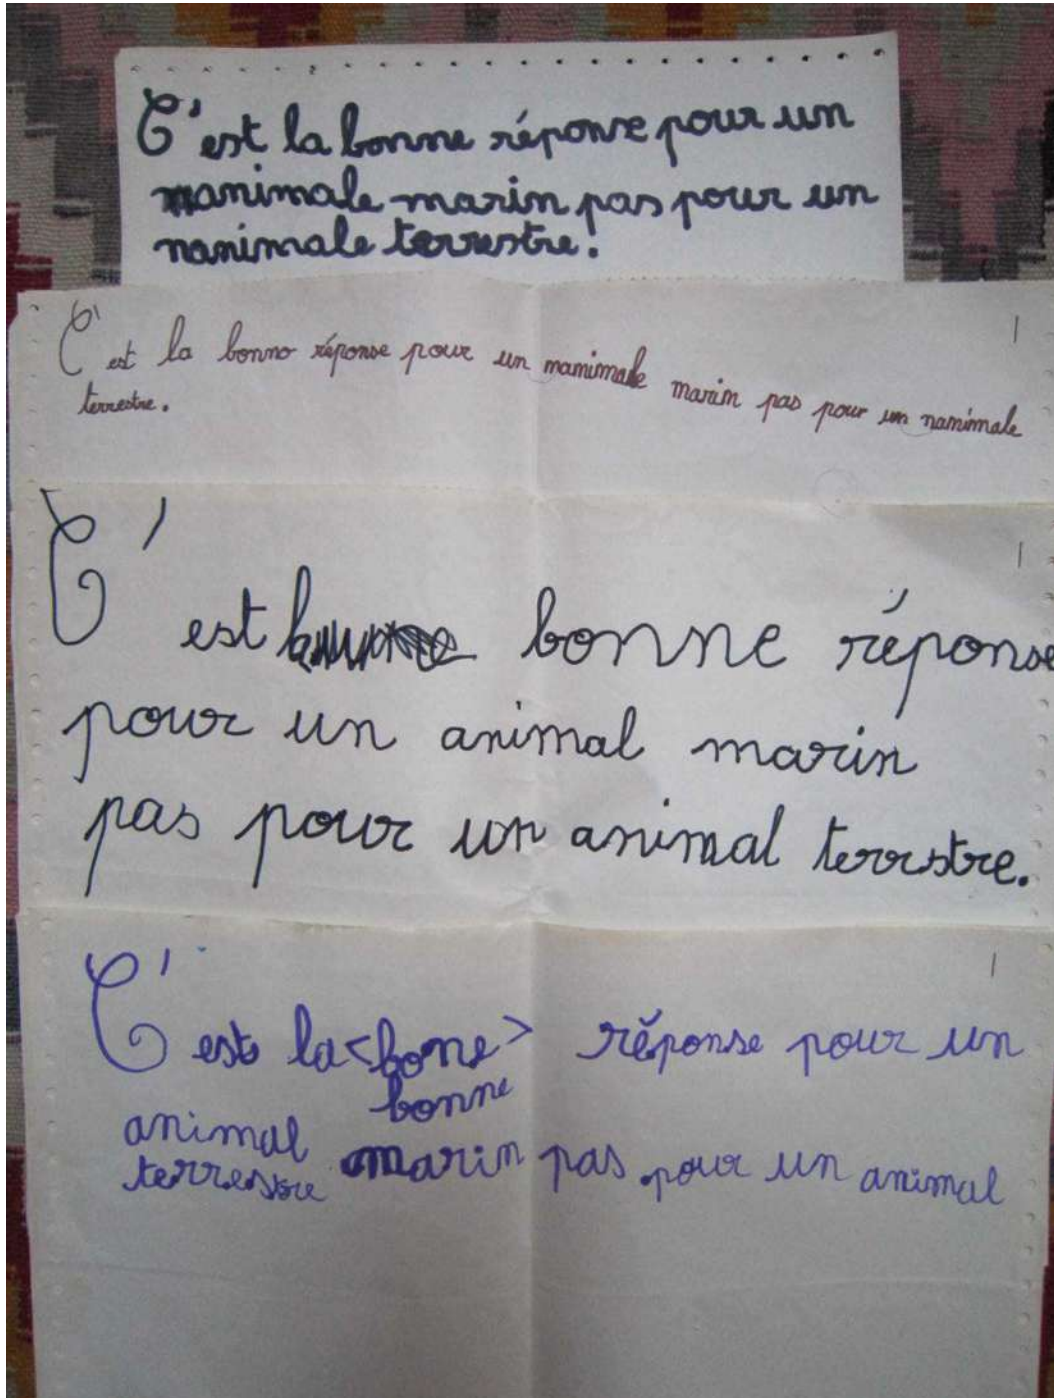 C'est la bonne réponse pour un
nanimale marin pas pour un
nanimale terrestre.
C'est la bonno réponse pour un manimale marin pas pour un nanimale
terrestre.
C'est bonne réponse
pour un animal marin
pas pour un animal terrstre.
C'est la <bone> réponse pour un
bonne
animal marin pas pour un animal
terrestre